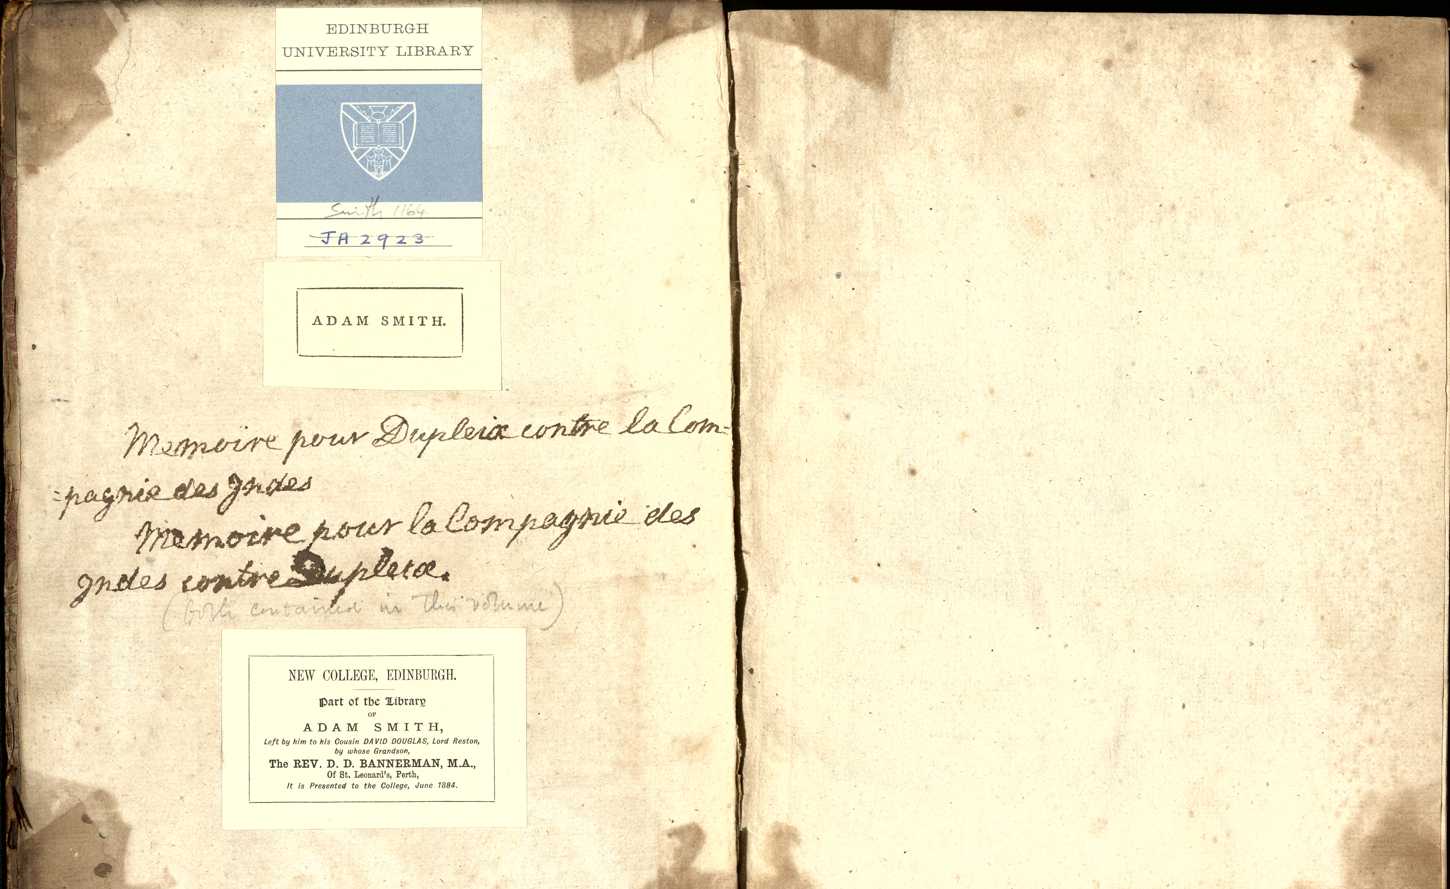 EDINBURGH
UNIVERSITY LIBRARY
Smith 1164
JA 2923
ADAM SMITH.
Memoire pour Dupleix contre la Com-
=pagnie des Indes
Memoire pour la Compagnie des
Indes contre Dupleix.
(both contained in this volume)
NEW COLLEGE, EDINBURGH.
Part of the Library
OF
ADAM SMITH,
Left by him to his Cousin DAVID DOUGLAS, Lord Reston,
by whose Grandson,
The REV. D. D. BANNERMAN, M.A.,
Of St. Leonard's, Perth,
It is Presented to the College, June 1884.